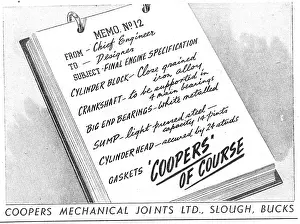 MEMO. No 12
FROM - Chief Engineer
TO - Designer
SUBJECT - FINAL ENGINE SPECIFICATION
CYLINDER BLOCK - Close grained
iron alloy,
CRANKSHAFT - to be supported in
4 main bearings
BIG END BEARINGS - White metalled
SUMP - light pressed steel -
capacity 14 pints
CYLINDER HEAD - secured by 24 studs
GASKETS 'COOPERS'
OF COURSE
COOPERS MECHANICAL JOINTS LTD., SLOUGH, BUCKS